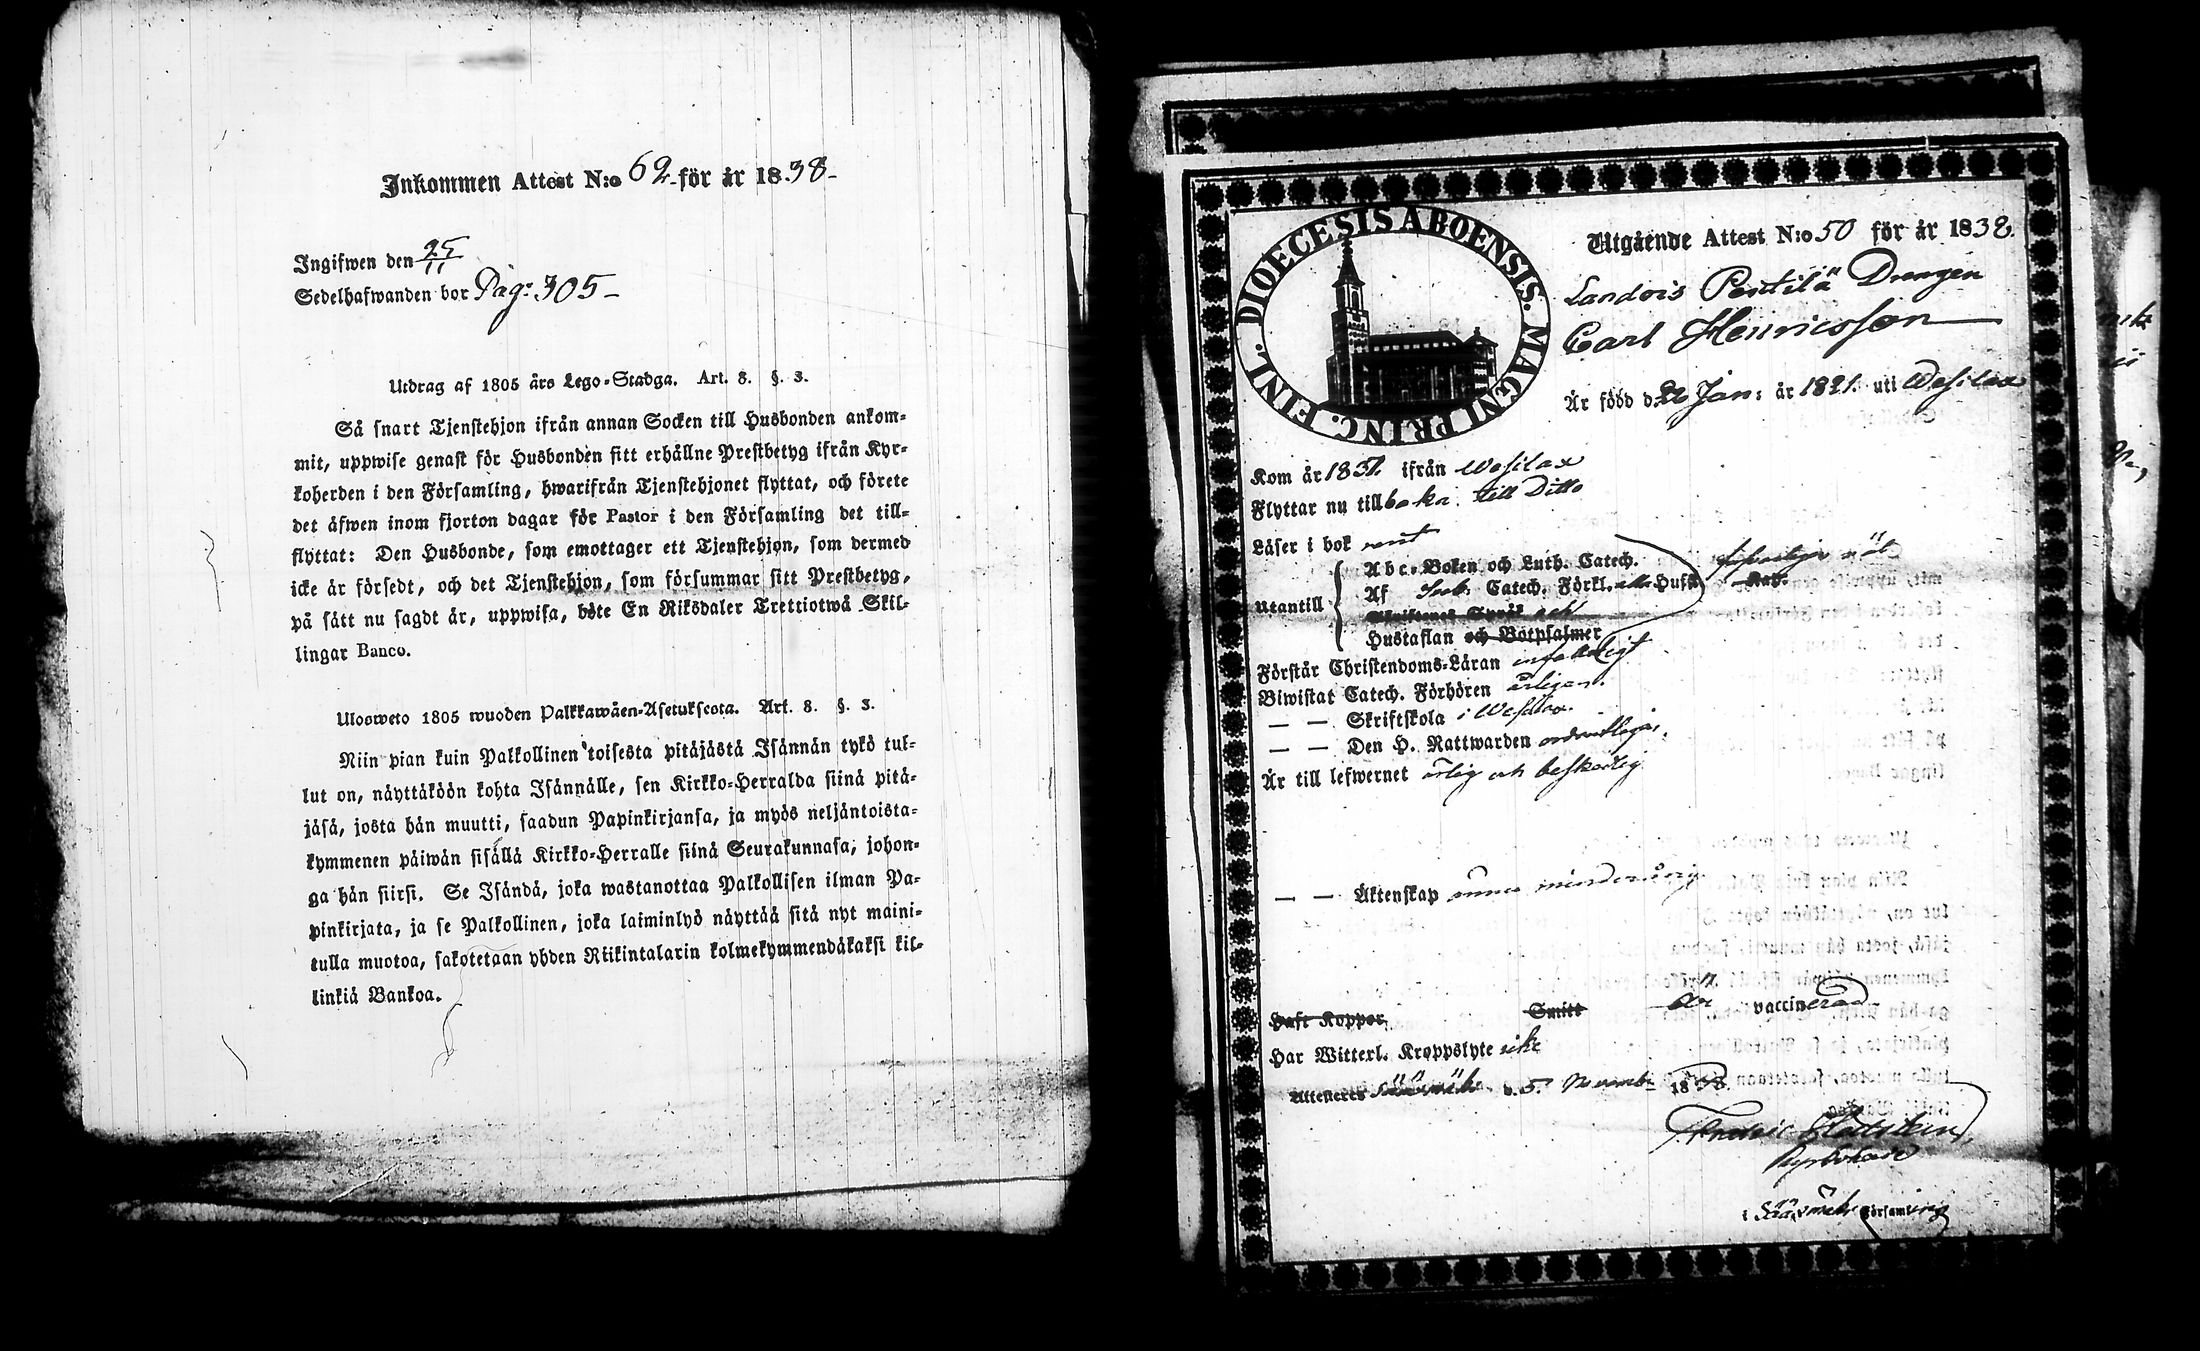 Inkommen Attest N:o 62. för år 1838.
Ingifwen den 25/11
Sedelhafwanden bor Pag: 305
Utdrag af 1805 års Lego-Stadga. Art. 8. §. 3.
Så snart Tjenstehjon ifrån annan Socken till Husbonden ankom-
mit, uppwise genast för Husbonden sitt erhållne Prestbetyg ifrån Kyr-
koherden i den Församling, hwarifrån Tjenstehjonet flyttat, och förete
det äfwen inom fjorton dagar för Pastor i den Församling det till-
flyttat: Den Husbonde, som emottager ett Tjenstehjon, som dermed
icke är försedt, och det Tjenstehjon, som försummar sitt Prestbetyg,
på sätt nu sagdt är, uppwisa, böte En Riksdaler Trettiotwå Skil-
lingar Banco.
Ulosweto 1805 wuoden Palkkawäen-Asetuksesta. Art. 8. §. 3.
Niin pian kuin Palkollinen toisesta pitäjästä Isännän tykö tul-
lut on, näyttäköön kohta Isännälle, sen Kirkko-Herralda siinä pitä-
jäsä, josta hän muutti, saadun Papinkirjansa, ja myös neljäntoista-
kymmenen päiwän sisällä Kirkko-Herralle siinä Seurakunnasa, johon-
ga hän siirsi. Se Isändä, joka wastanottaa Palkollisen ilman Pa-
pinkirjata, ja se Palkollinen, joka laiminlyö näyttää sitä nyt maini-
tulla muotoa, sakotetaan yhden Riikintalarin kolmekymmendäkaksi kil-
linkiä Bankoa.
DIOECESIS ABOENSIS. MAGNI PRINC. FINL.
Utgående Attest N:o 50 för år 1838.
Landois Pentilä Drengen
Carl Henricsson
Är född d. 22 Jan: år 1821. uti Wesilax
Kom år 1837. ifrån Wesilax
Flyttar nu tillbaka till Ditto
Läser i bok rent
Utantill
Abc-Boken och Luth. Catech.
Af Sveb. Catech. Förkl. Husf.
Hustaflan och Botpsalmer
Förstår Christendoms-Läran
Biwistat Catech. Förhören årligen.
— — Skriftskola i Wesilax.
— — Den H. Nattwarden ordentligen.
Är till lefwernet ärlig och beskedlig
— — Äktenskap ännu minderårig
Haft Koppor Smitt är vaccinerad
Har Witterl. Kroppslyte icke
Attesteras Sääxmäki d. 5. Novemb. 1838.
Fredric
Kyrkoherde
i Sääxmäki Församling